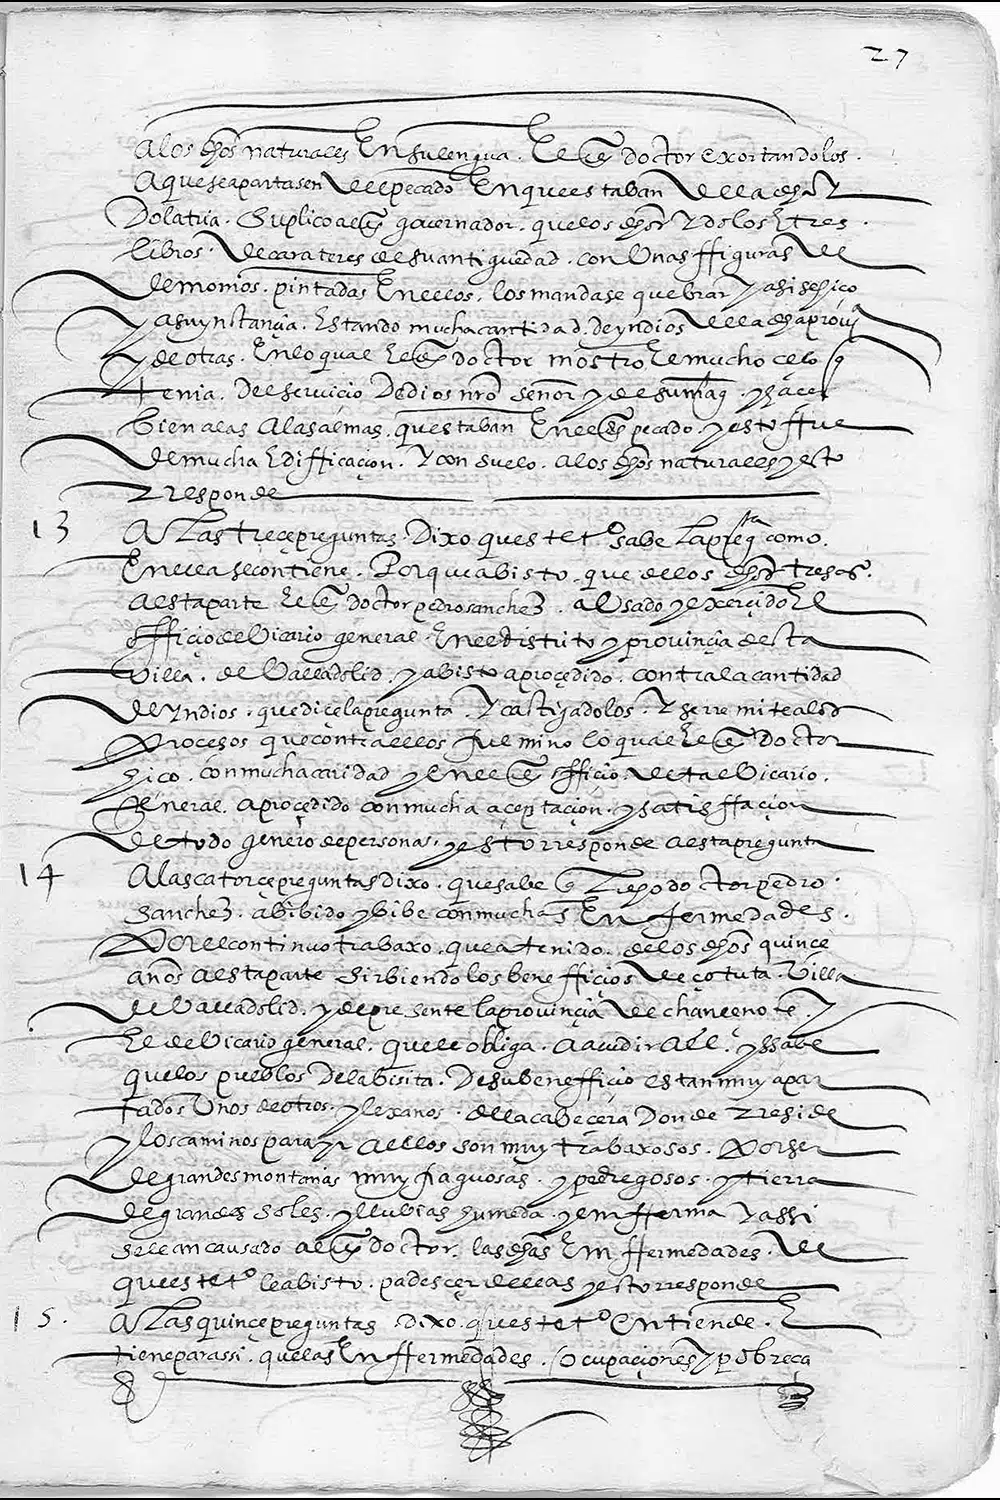 27
a los dhos naturales En su lengua. El dho doctor exortandolos.
a que se apartasen del pecado En que estaban de la dha y
dolatria. Suplico al dho governador. que los dhos ydolos E tres
libros. de carateres de su antiguedad. con Unas ffiguras de
demonios. pintadas En ellos. los mandase quebrar y asi se hiço
a su ynstançia. Estando mucha cantidad. de yndios de la dha proviª
y de otras. En lo qual El dho doctor mostro El mucho çelo q
tenia. del servicio De dios nro señor y de su magᵈ. y hacer
bien a las A las almas. questaban En el dho pecado. y esto ffue
de mucha Edifficaçion. Y con suelo. a los dhos naturales y esto
rresponde
13 A Las treçe preguntas. Dixo queste tᵒ sabe La pregᵗᵃ como.
En ella se contiene. Porque a bisto. que de los dhos tres aˢ.
a esta parte El dho doctor pedro sanchez. a Usado y exerçido El
offiçio de Vicario general. En el distrito y provinçia desta
Villa. de Valladolid. y a bisto a proçedido. contra la cantidad
de Yndios. que diçe la pregunta. Y castigadolos. Y se rremite a los
proçesos que contra ellos fulmino lo qual El dho Doctor
hiço. con mucha caridad y En el dho officio. de tal Vicario.
General. a proçedido con mucha açeptaçion. y satisffaçion
de todo genero de personas. y esto rresponde a esta pregunta
14 A las catorçe preguntas dixo. que sabe q El dho doctor pedro
sanchez. a bibido y bibe con muchas Enfermedades.
Por el continuo trabaxo. que a tenido. de los dhos quinçe
años a esta parte sirbiendo los benefficios de çotuta. Villa
de Valladolid. y de presente la provinçia de chancenote. y
El de Vicario general. que le obliga. a acudir a ll. y ssabe
que los pueblos De la bisita. De su benefficio estan muy apar
tados Unos de otros. y lexanos. de la cabeçera Donde rreside
y los caminos para yr a ellos son muy trabaxosos. Por ser
de grandes montañas muy fraguosas. y pedregosos. y tierra
de grandes soles. y llubias humeda. y enfferma Y assi
se le an causado al dho doctor. las dhas Enffermedades. de
que este tᵒ le a bisto. padesçer de ellas y esto rresponde
15. A Las quinçe preguntas. dixo. que este tᵒ entiende. E
tiene para ssi. que las Enffermedades. Ocupaçiones y pobreça